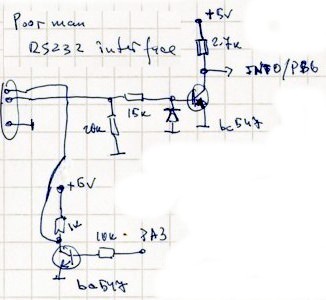 Poor man
RS232 interface
+5V
2.7k
INT0/PB6
15k
20k
bc547
+5V
1k
10k
PA3
bc547